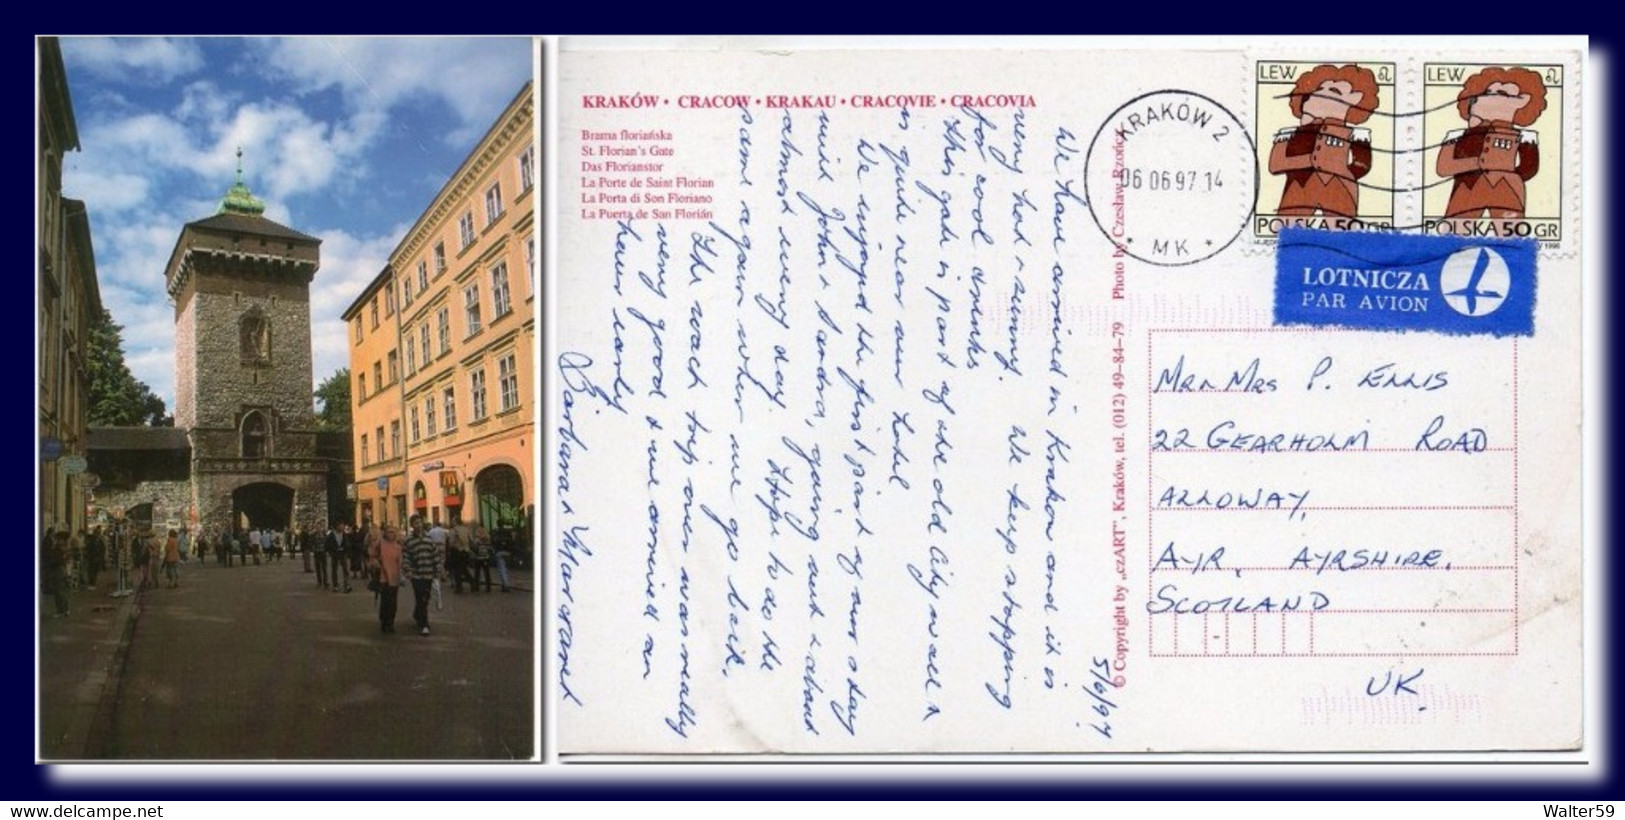 KRAKÓW • CRACOW • KRAKAU • CRACOVIE • CRACOVIA
Brama floriańska
St. Florian's Gate
Das Florianstor
La Porte de Saint Florian
La Porta di Son Floriano
La Puerta de San Florián
5/6/97
We have arrived in Krakow and it is
very hot & sunny. We keep stopping
for cool drinks
This gate is part of the old city wall &
is quite near our hotel
We enjoyed the first part of our stay
with John & Sandra, going out & about
almost every day. Hope to do the
same again when we go back.
The coach trip over was really
very good & we arrived an
hour early
Barbara & Margaret
© Copyright by „czART", Kraków, tel. (012) 49-84-79 Photo by Czesław Rzońca
KRAKÓW 2
06 06 97 14
* MK *
LEW
POLSKA 50 GR
LEW
POLSKA 50 GR
1996
LOTNICZA
PAR AVION
MR & MRS P. ELLIS
22 GEARHOLM ROAD
ALLOWAY,
AYR, AYRSHIRE,
SCOTLAND
UK.
http://www.delcampe.net
Walter59